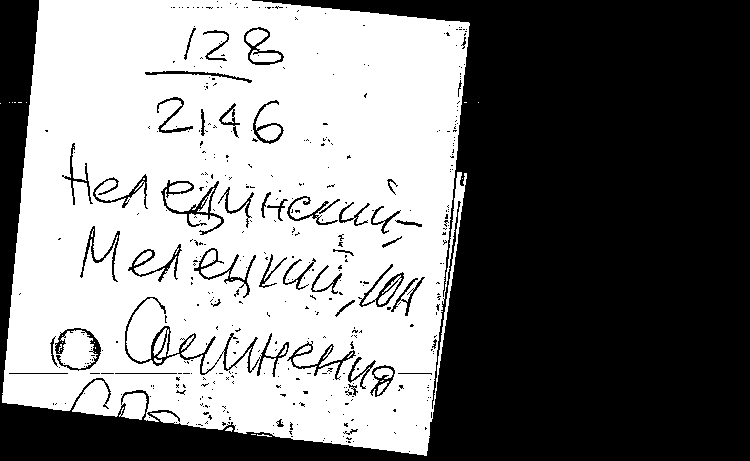 128
2146
Нелединский-
Мелецкий, Ю.А
Сочинения